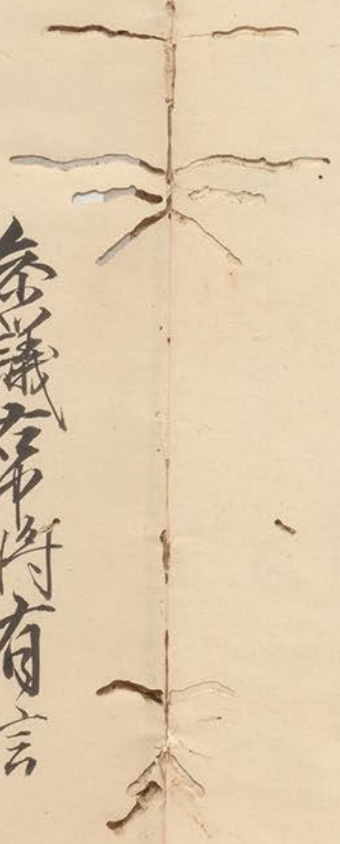 参議右中将有言